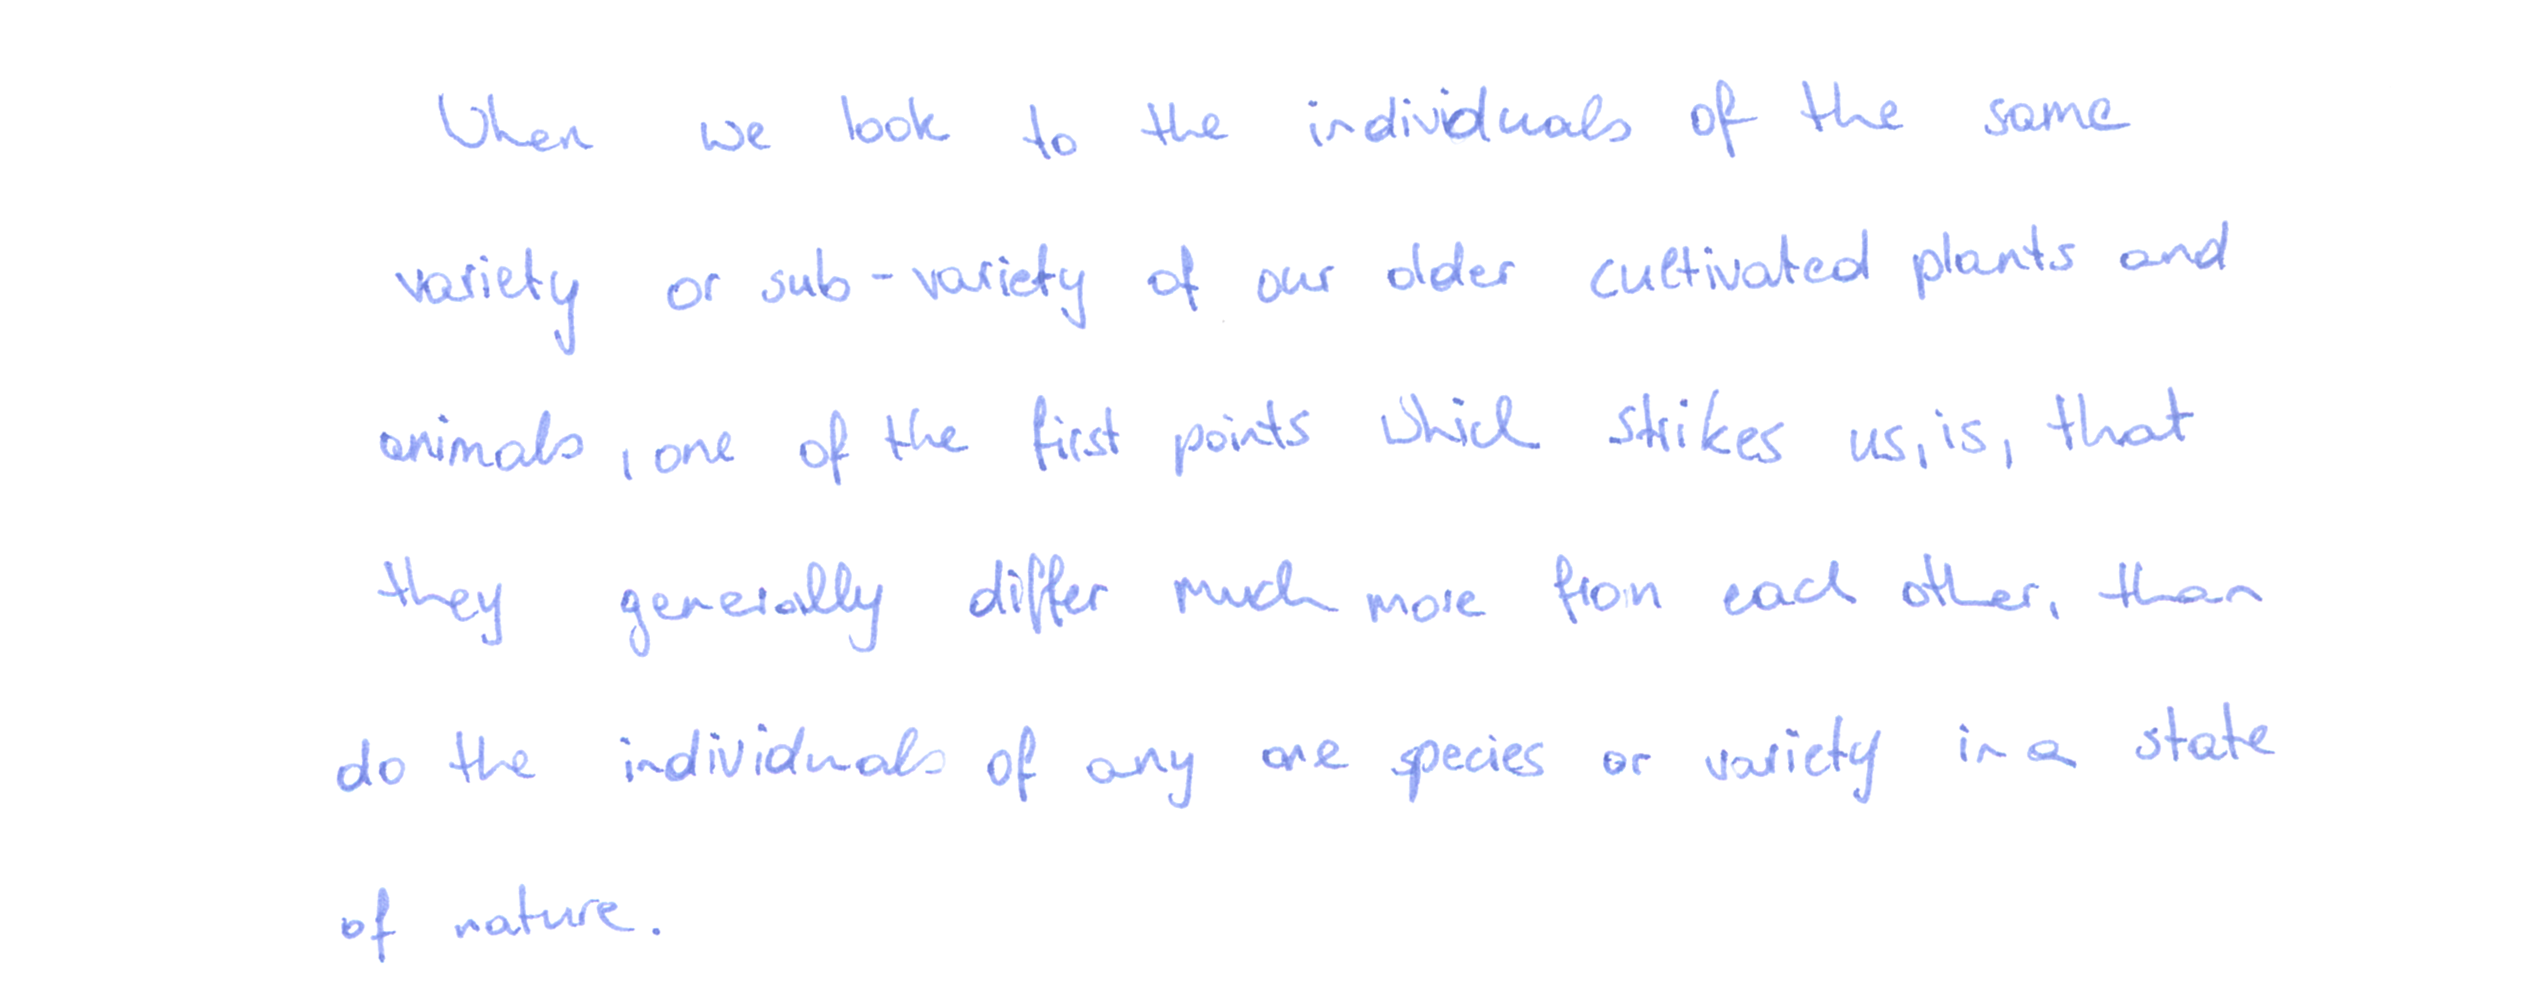 When we look to the individuals of the same
variety or sub-variety of our older cultivated plants and
animals, one of the first points which strikes us, is, that
they generally differ much more from each other, than
do the individuals of any one species or variety in a state
of nature.